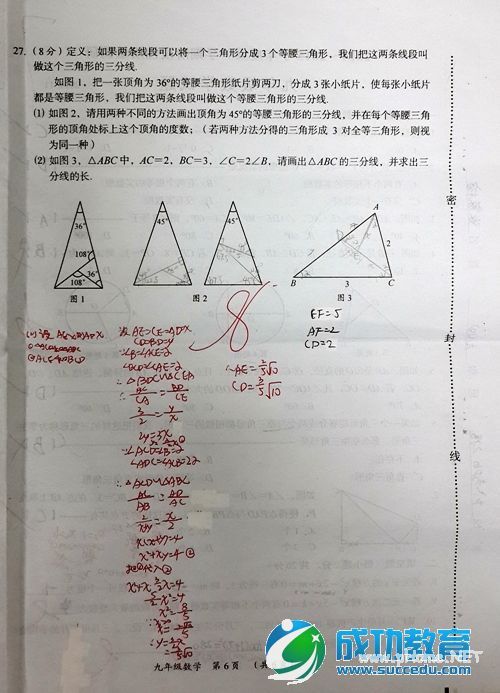 27.（8分）定义：如果两条线段可以将一个三角形分成3个等腰三角形，我们把这两条线段叫
做这个三角形的三分线.
如图1，把一张顶角为36°的等腰三角形纸片剪两刀，分成3张小纸片，使每张小纸片
都是等腰三角形，我们把这两条线段叫做这个等腰三角形的三分线.
(1) 如图2，请用两种不同的方法画出顶角为45°的等腰三角形的三分线，并在每个等腰三角
形的顶角处标上这个顶角的度数；（若两种方法分得的三角形成3对全等三角形，则视
为同一种）
(2) 如图3，△ABC中，AC=2，BC=3，∠C=2∠B，请画出△ABC的三分线，并求出三
分线的长.
密
36°
108°
36°
108°
图1
45°
45°
图2
A
2
B
3
C
图3
8
EF=5
AF=2
CD=2
设AE=CE=AD=X
CD=BD=y
∠B=∠ACE=2
∠BCD=∠CAE=2
∴△BDC∽△CEA
BC/CA=BD/CE
3/2=y/x
2y=3x
∠ACD=∠B=2
∠ADC=∠ACB=22
∴△ACD∽△ABC
AC/AB=AD/AC
2/x+y=x/2
x(x+y)=4
x²+xy=4 ②
把①代入②
∴AE=2/5√10
CD=3/5√10
封
线
九年级数学 第6页 （共
成功教育
www.succedu.com